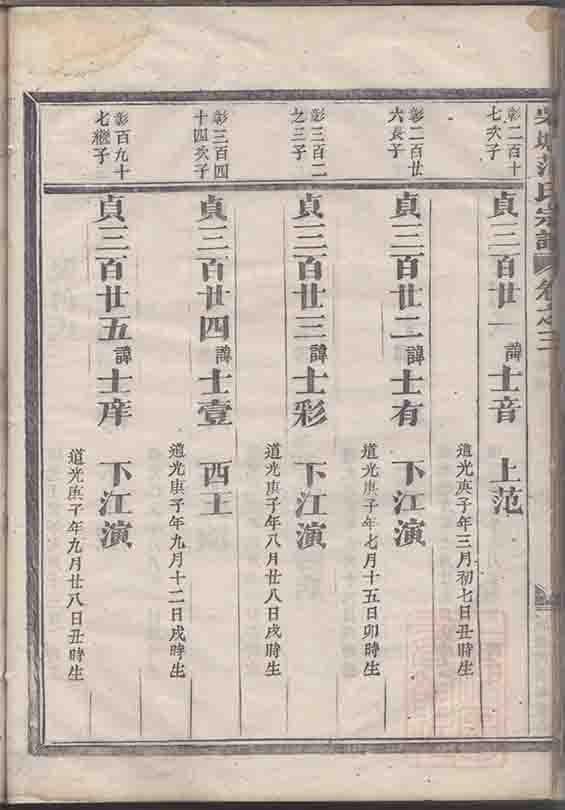 氏宗譜 卷之三
彰二百十
七次子
貞三百廿一 諱士音 上范
道光庚子年三月初七日丑時生
彰二百廿
六長子
貞三百廿二 諱士有 下江演
道光庚子年七月十五日卯時生
彰三百二
之三子
貞三百廿三 諱士彩 下江演
道光庚子年八月廿八日戌時生
彰三百四
十四次子
貞三百廿四 諱士壹 西王
道光庚子年九月十二日戌時生
彰百九十
七繼子
貞三百廿五 諱士庠 下江演
道光庚子年九月廿八日丑時生